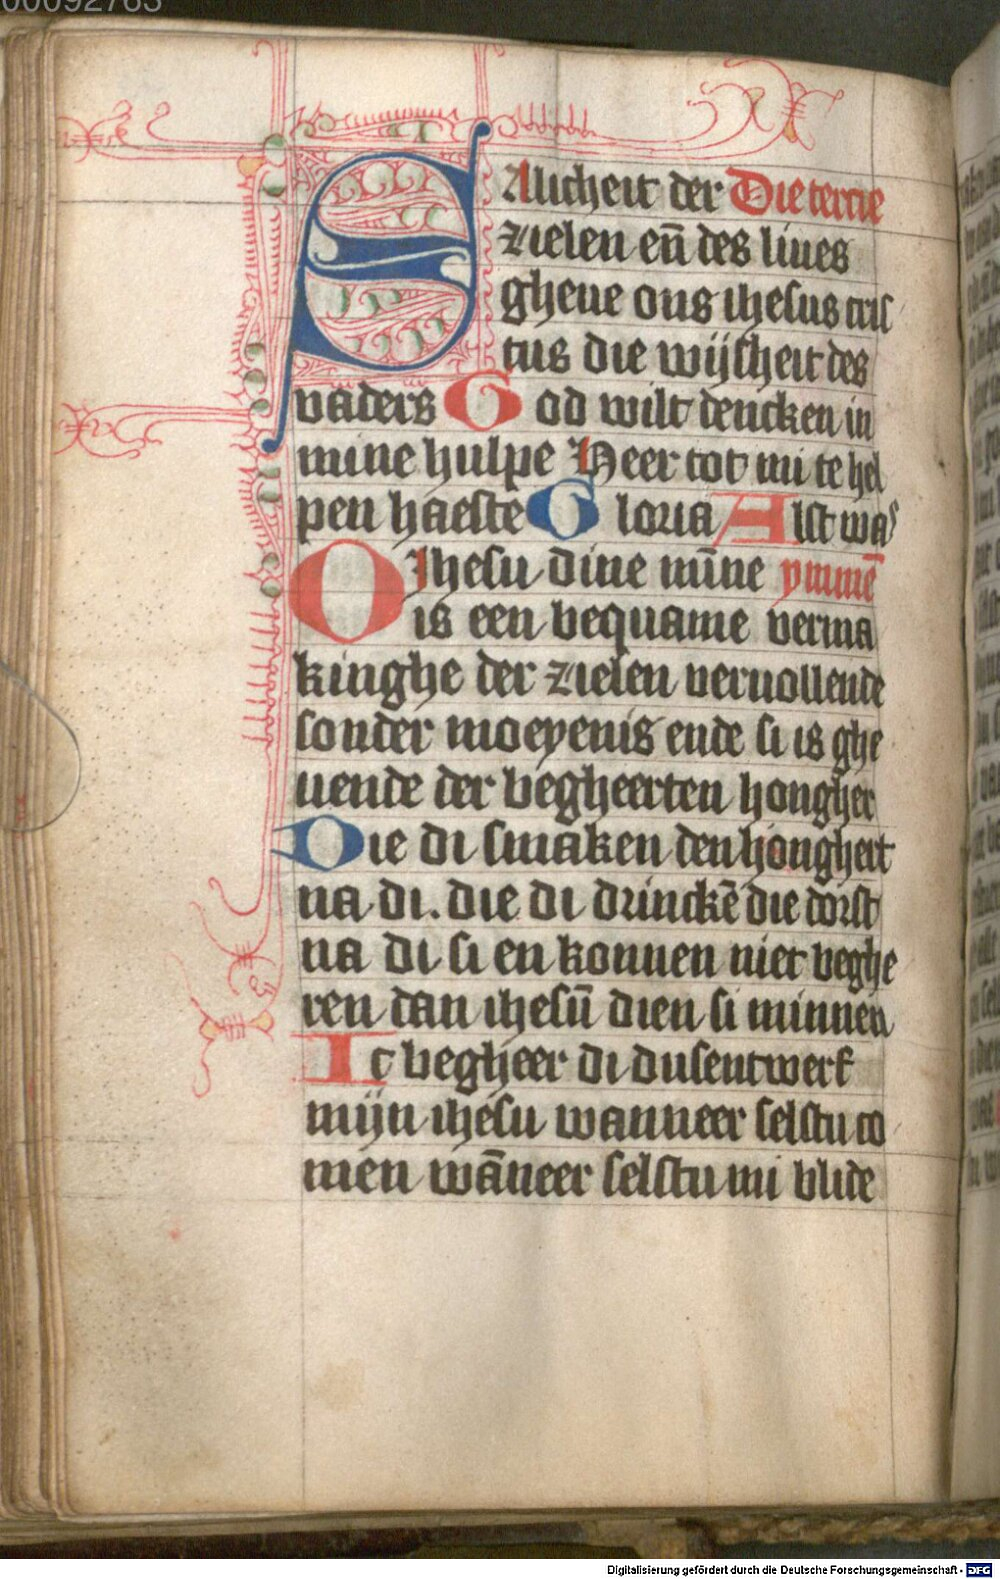 00092763
SAlicheit der Die tercie
zielen en̄ des liues
gheue ons ihesus cris
tus die wijsheit des
vaders God wilt dencken in
mine hulpe Heer tot mi te hel
pen haeste Gloria Alst was
O Ihesu dine mīne ymmē
is een bequame verma
kinghe der zielen vervollende
sonder moeyenis ende si is ghe
uende der begheerten hongher
Die di smaken den hongheit
na di. die di drinckē die dorst
na di si en konnen niet beghe
ren dan ihesū dien si minnen
Ic begheer di dusentwerf
mijn ihesu wanneer selstu co
men wāneer selstu mi blide
Digitalisierung gefördert durch die Deutsche Forschungsgemeinschaft - DFG